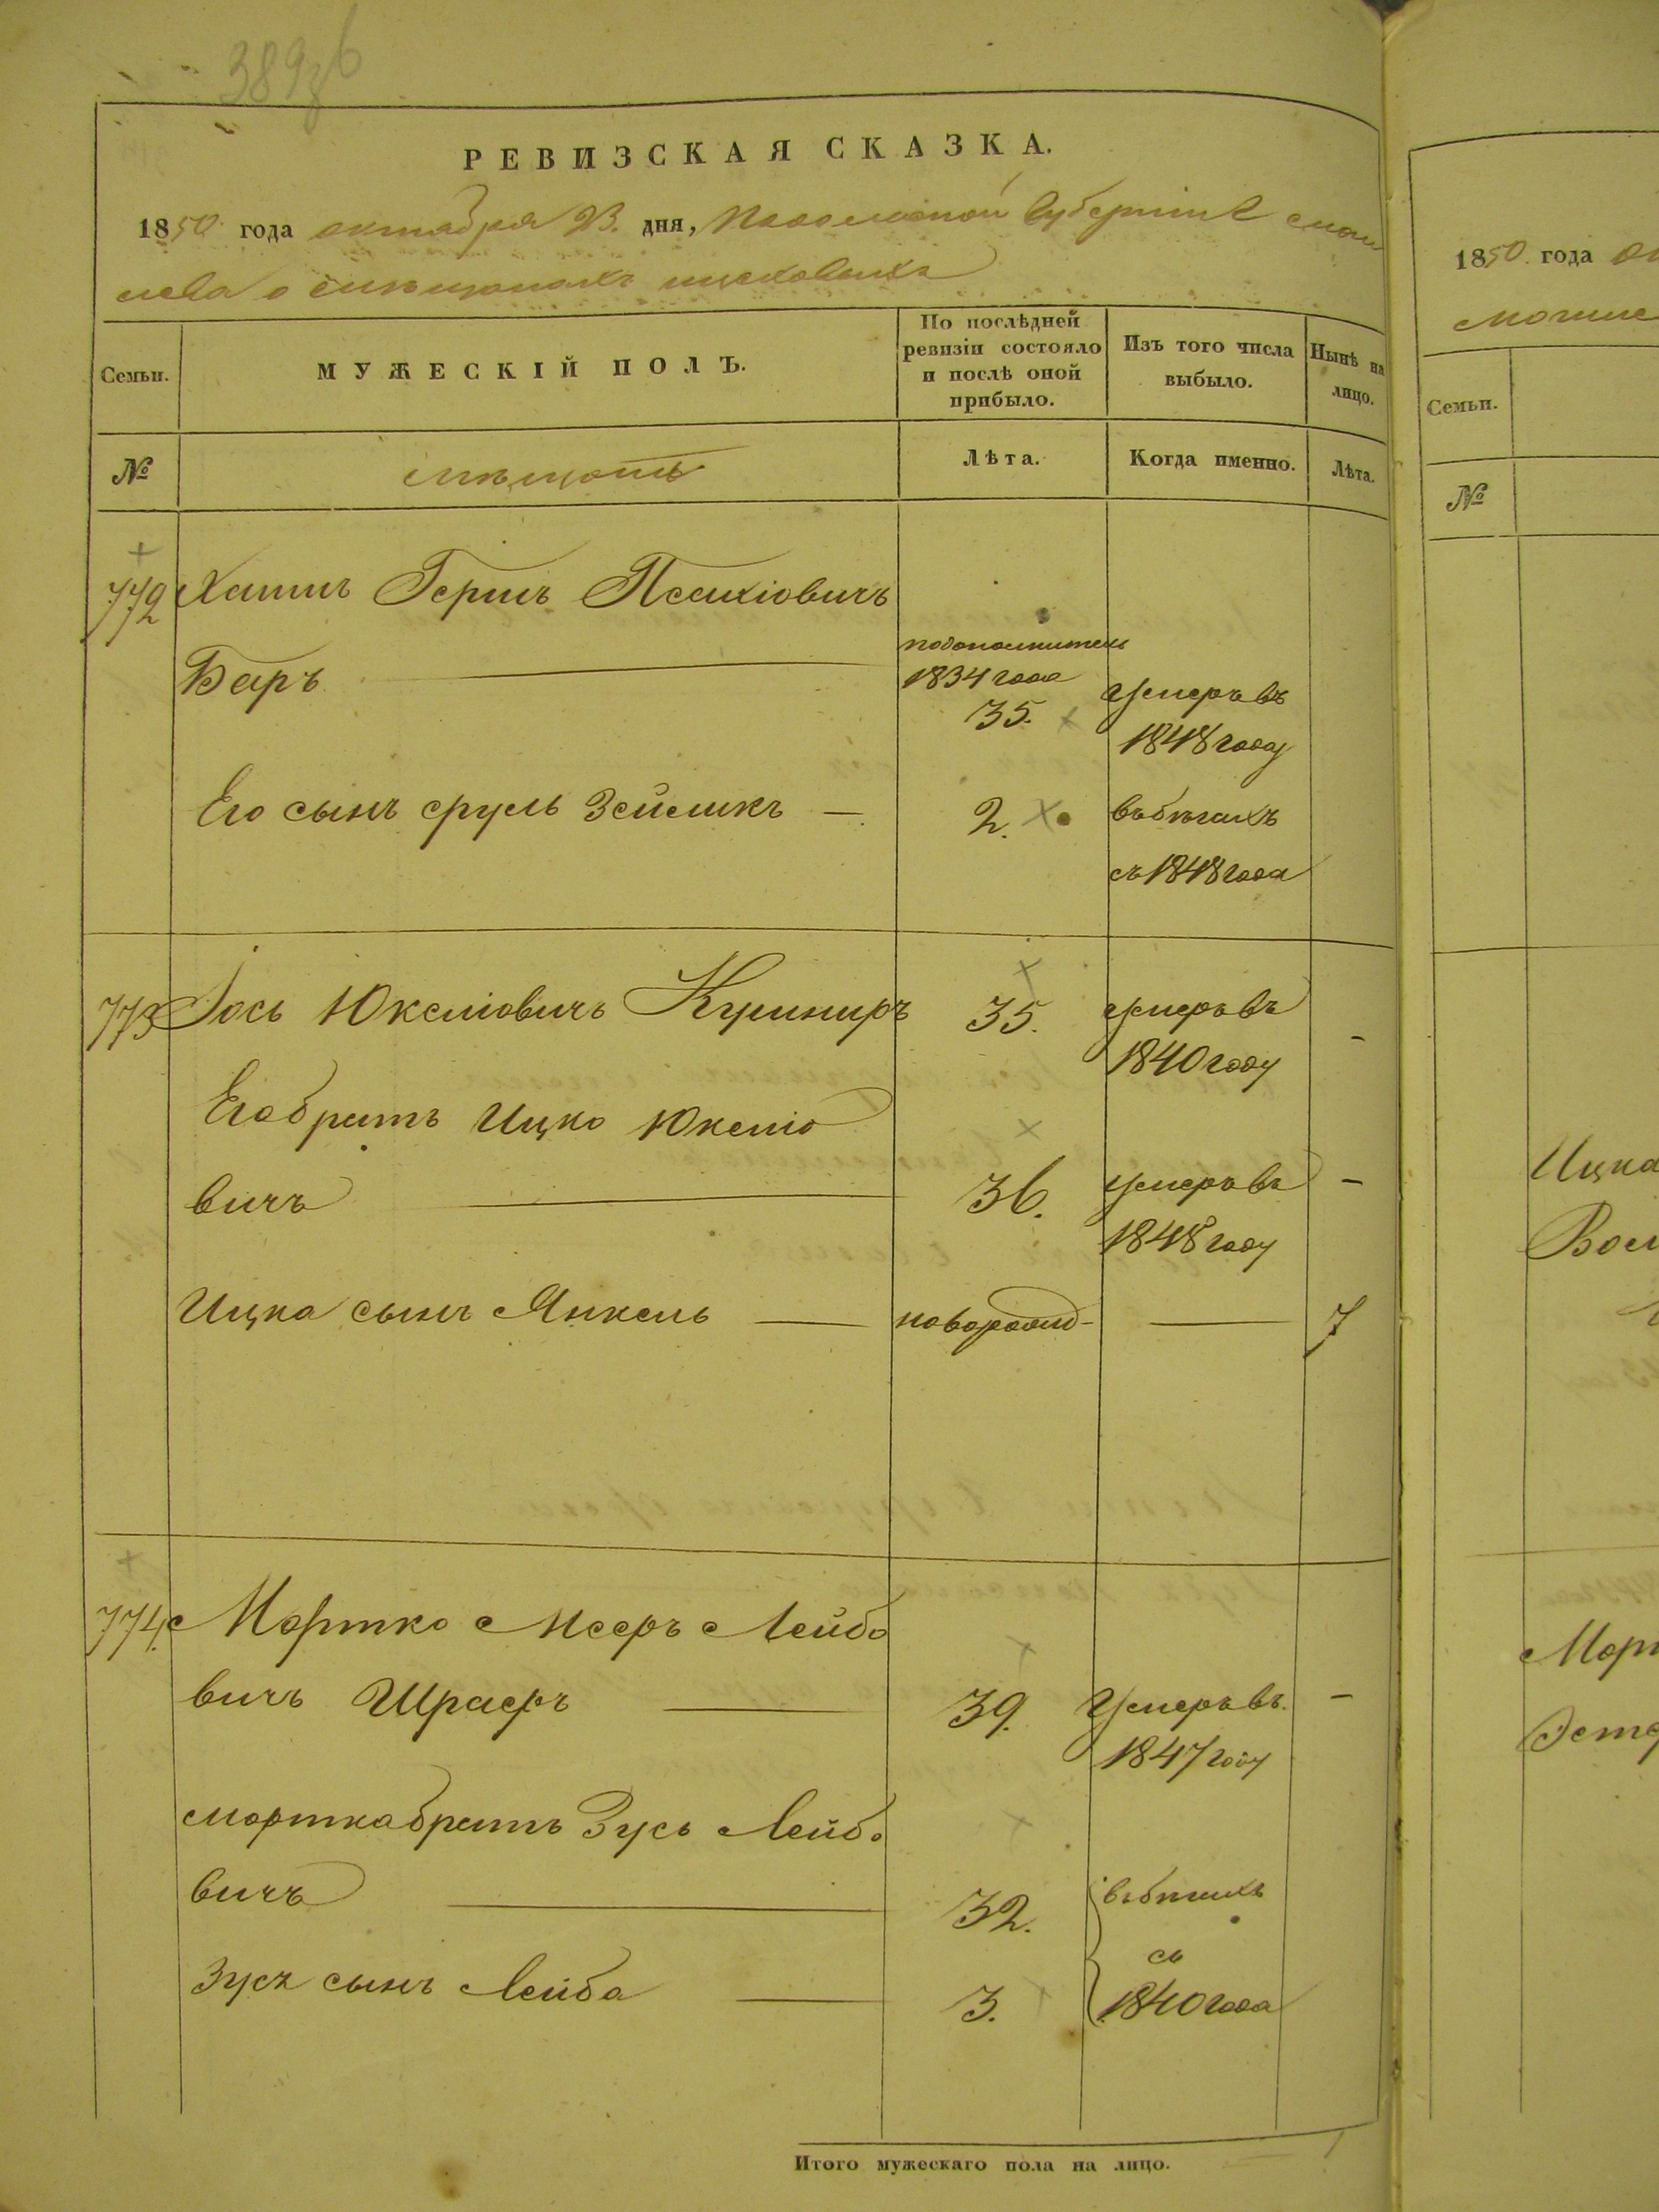 389 об
РЕВИЗСКАЯ СКАЗКА.
1850 года октября 23. дня, Подольской Губерніи Моги
лева о мѣщанахъ
Семьи.
МУЖЕСКІЙ ПОЛЪ.
По послѣдней ревизіи состояло и послѣ оной прибыло.
Изъ того числа выбыло.
Нынѣ на лицо.
№
мѣщане
Лѣта.
Когда именно.
Лѣта.
772 Хаимъ Гершъ Псахіовичъ
подополнитель
Баръ 1834 года
35. Умеръ въ
1848 году
Его сынъ Сруль Зейликъ — 2. въ бѣгахъ
съ 1848 года
773 Іось Юкеліовичъ Кушниръ 35. умеръ въ -
1840 году
Его братъ Ицко Юкеліо
вичъ 36. умеръ въ -
1848 году
Ицка сынъ Янкель — новорожд- — 7
774. Мортко Мееръ Лейбо
вичъ Шраеръ 39. Умеръ въ. -
1847 году
Мортка братъ Зусь Лейбо
вичъ 32. въ бѣгахъ
съ
Зуся сынъ Лейба — 3. 1840 года
Итого мужескаго пола на лицо. 1
1850. года ок
Могиле
Семьи.
№
Ицка
Морт
Эсте